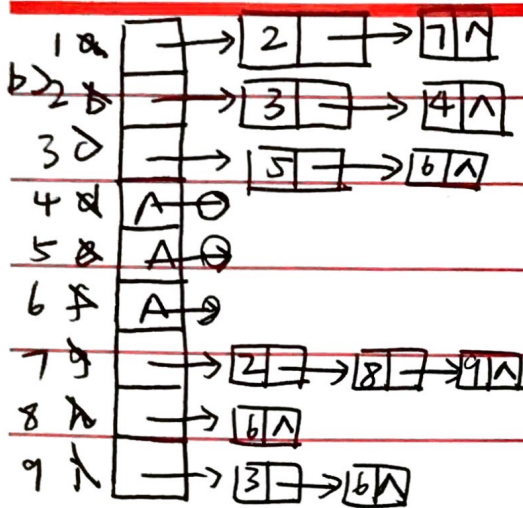 1 a → 2 → 7 ∧
b) 2 b → 3 → 4 ∧
3 → 5 → 6 ∧
4 d ∧
5 e ∧
6 f ∧
7 g → 2 → 8 → 9 ∧
8 h → 6 ∧
9 i → 3 → 6 ∧